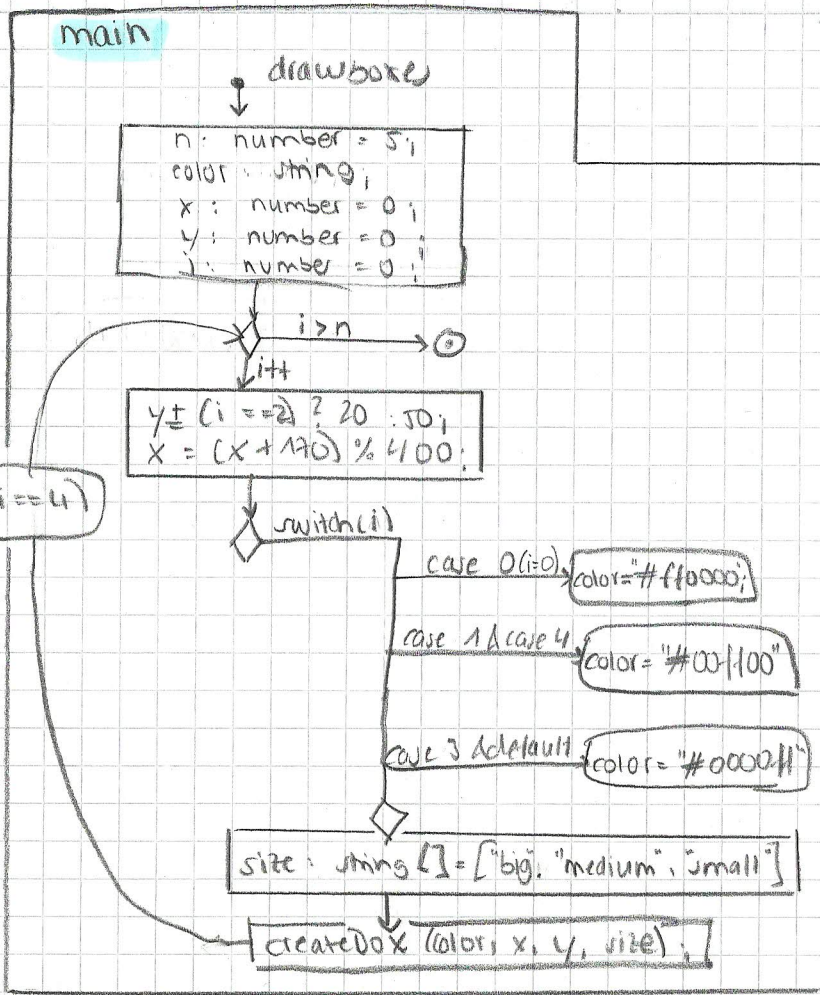 main
drawboxes
n: number = 5;
color: string;
x: number = 0;
y: number = 0;
i: number = 0;
i>n
i++
y± (i ==2) ? 20 : 50;
x = (x + 170) % 400;
i==4)
switch(i)
case 0(i=0)
color="#ff0000;
case 1 & case 4
color= "#00ff00"
case 3 & default
color= "#0000ff"
size: string [] = ["big", "medium", "small"]
createBox (color, x, y, size);